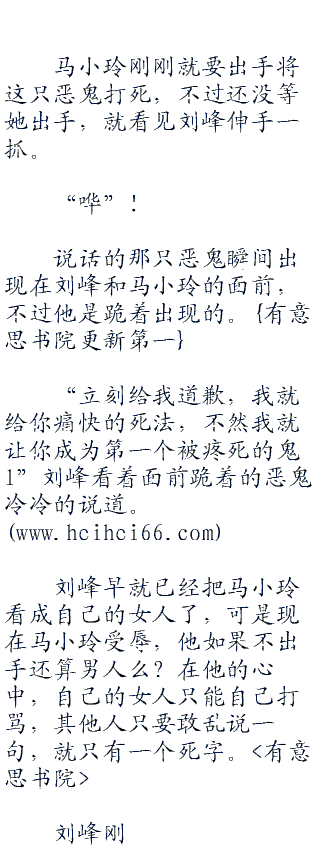 马小玲刚刚就要出手将
这只恶鬼打死，不过还没等
她出手，就看见刘峰伸手一
抓。
“哗”！
说话的那只恶鬼瞬间出
现在刘峰和马小玲的面前，
不过他是跪着出现的。{有意
思书院更新第一}
“立刻给我道歉，我就
给你痛快的死法，不然我就
让你成为第一个被疼死的鬼
1”刘峰看着面前跪着的恶鬼
冷冷的说道。
(www.hcihci66.com)
刘峰早就已经把马小玲
看成自己的女人了，可是现
在马小玲受辱，他如果不出
手还算男人么？在他的心
中，自己的女人只能自己打
骂，其他人只要敢乱说一
句，就只有一个死字。<有意
思书院>
刘峰刚